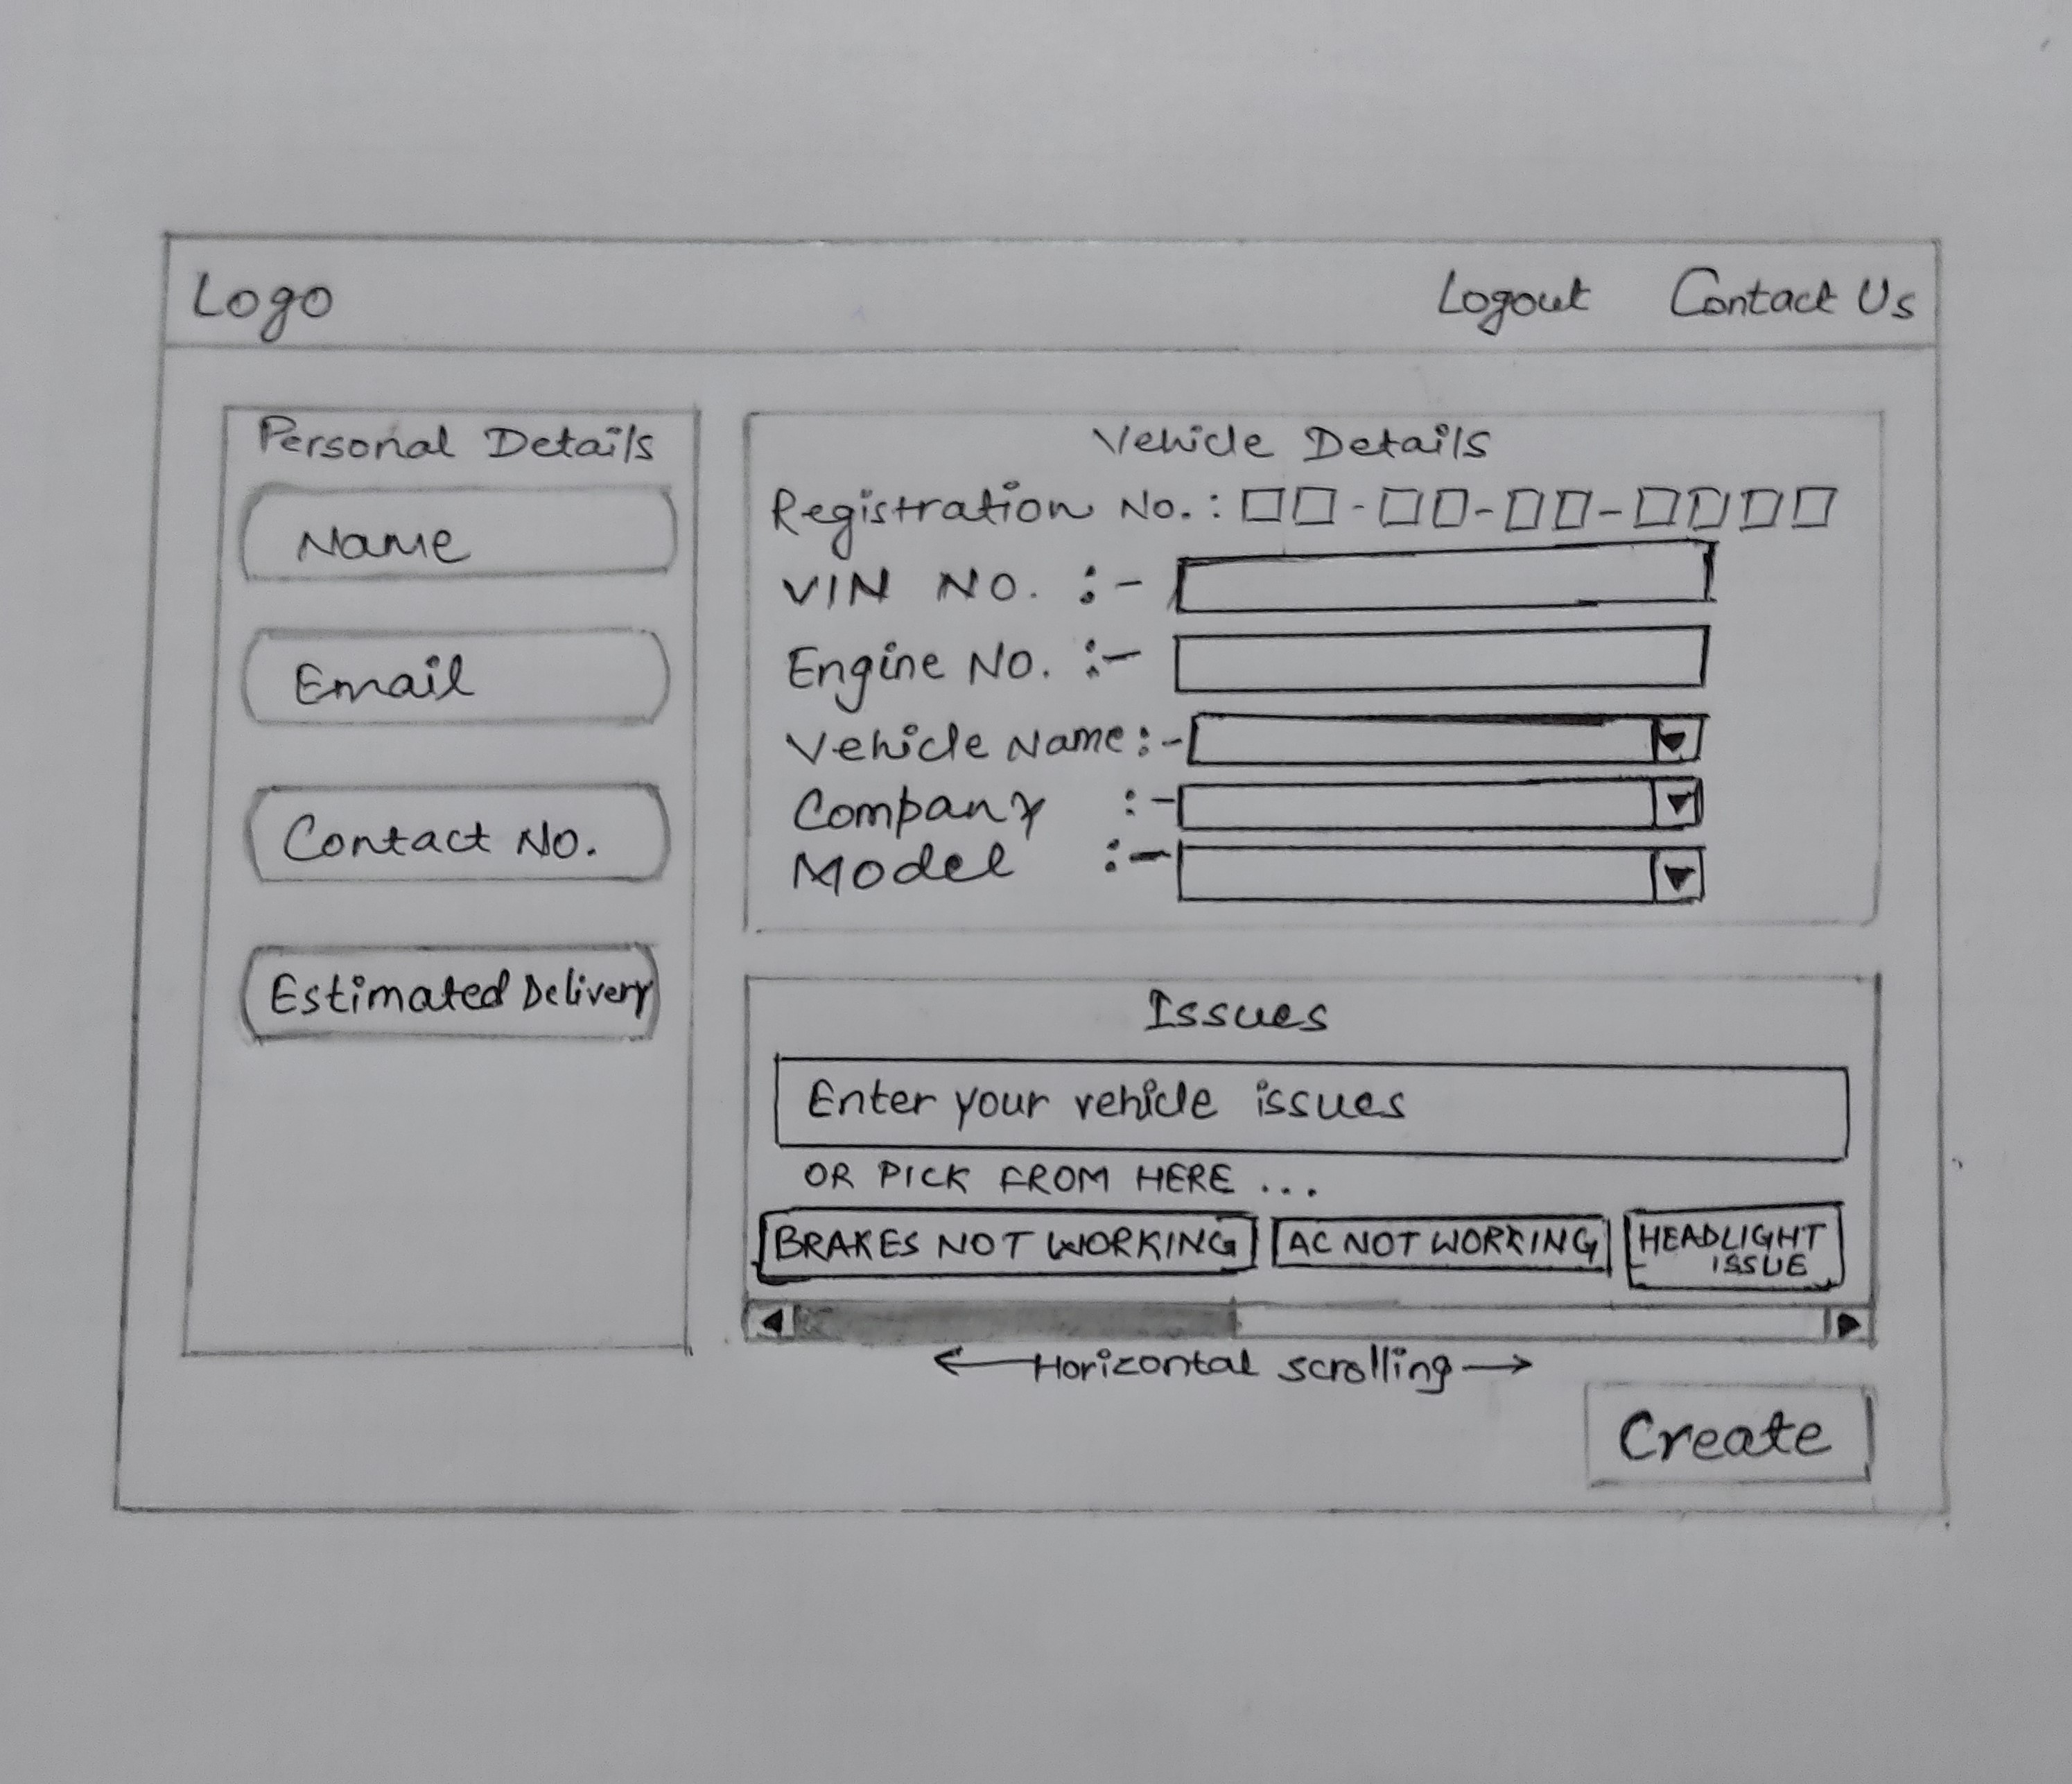 Logo
Logout Contact Us
Personal Details
Name
Email
Contact No.
Estimated Delivery
Vehicle Details
Registration No. :
VIN NO. :-
Engine No. :-
Vehicle Name :-
Company :-
Model :-
Issues
Enter your vehicle issues
OR PICK FROM HERE ...
BRAKES NOT WORKING
AC NOT WORKING
HEADLIGHT
ISSUE
Horizontal scrolling
Create